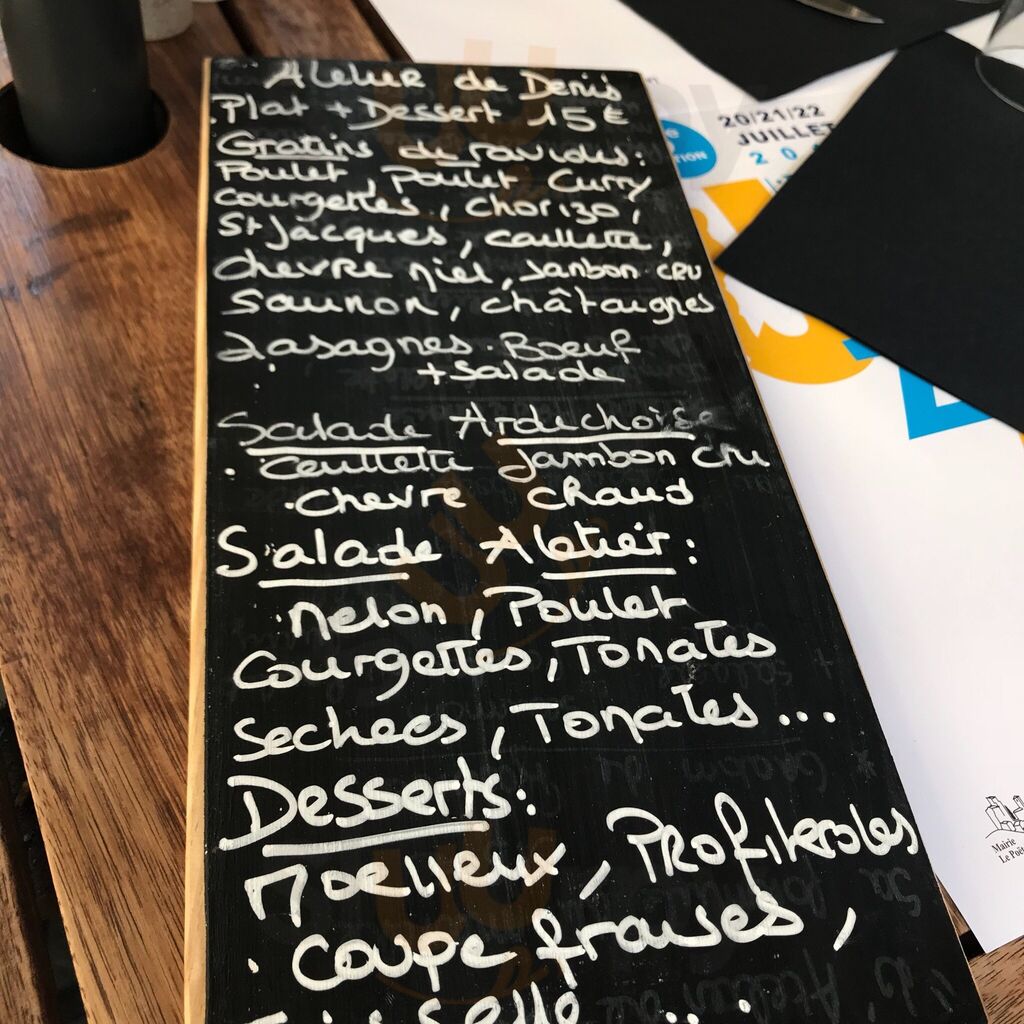 Atelier de Denis
Plat + Dessert 15€
Gratins de ravioles:
Poulet, Poulet Curry
Courgettes, Chorizo,
St Jacques, Caillette,
Chèvre miel, Jambon cru
Saumon, châtaignes
Lasagnes Boeuf
+ Salade
Salade Ardechoise
Caillette Jambon Cru
chevre chaud
Salade Atelier:
Melon, Poulet
Courgettes, Tomates
Sechees, Tomates...
Desserts:
Moelleux, Profiteroles
Coupe fraises,
20/21/22
JUILLET
Mairie